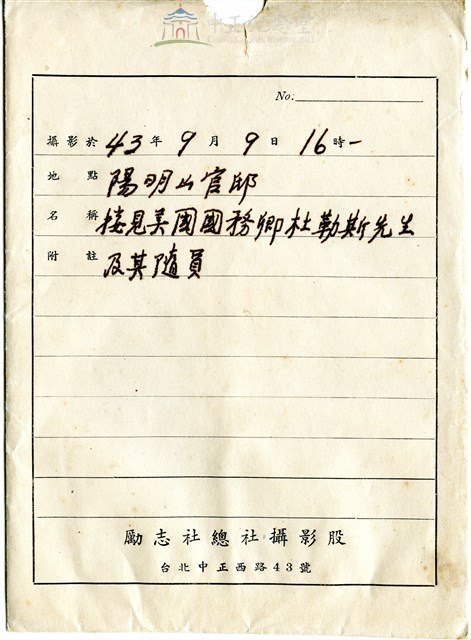 中正紀念堂
No:
攝影於 43 年 9 月 9 日 16 時一
地點 陽明山官邸
名稱 接見美國國務卿杜勒斯先生
附註 及其隨員
勵志社總社攝影股
台北中正西路43號